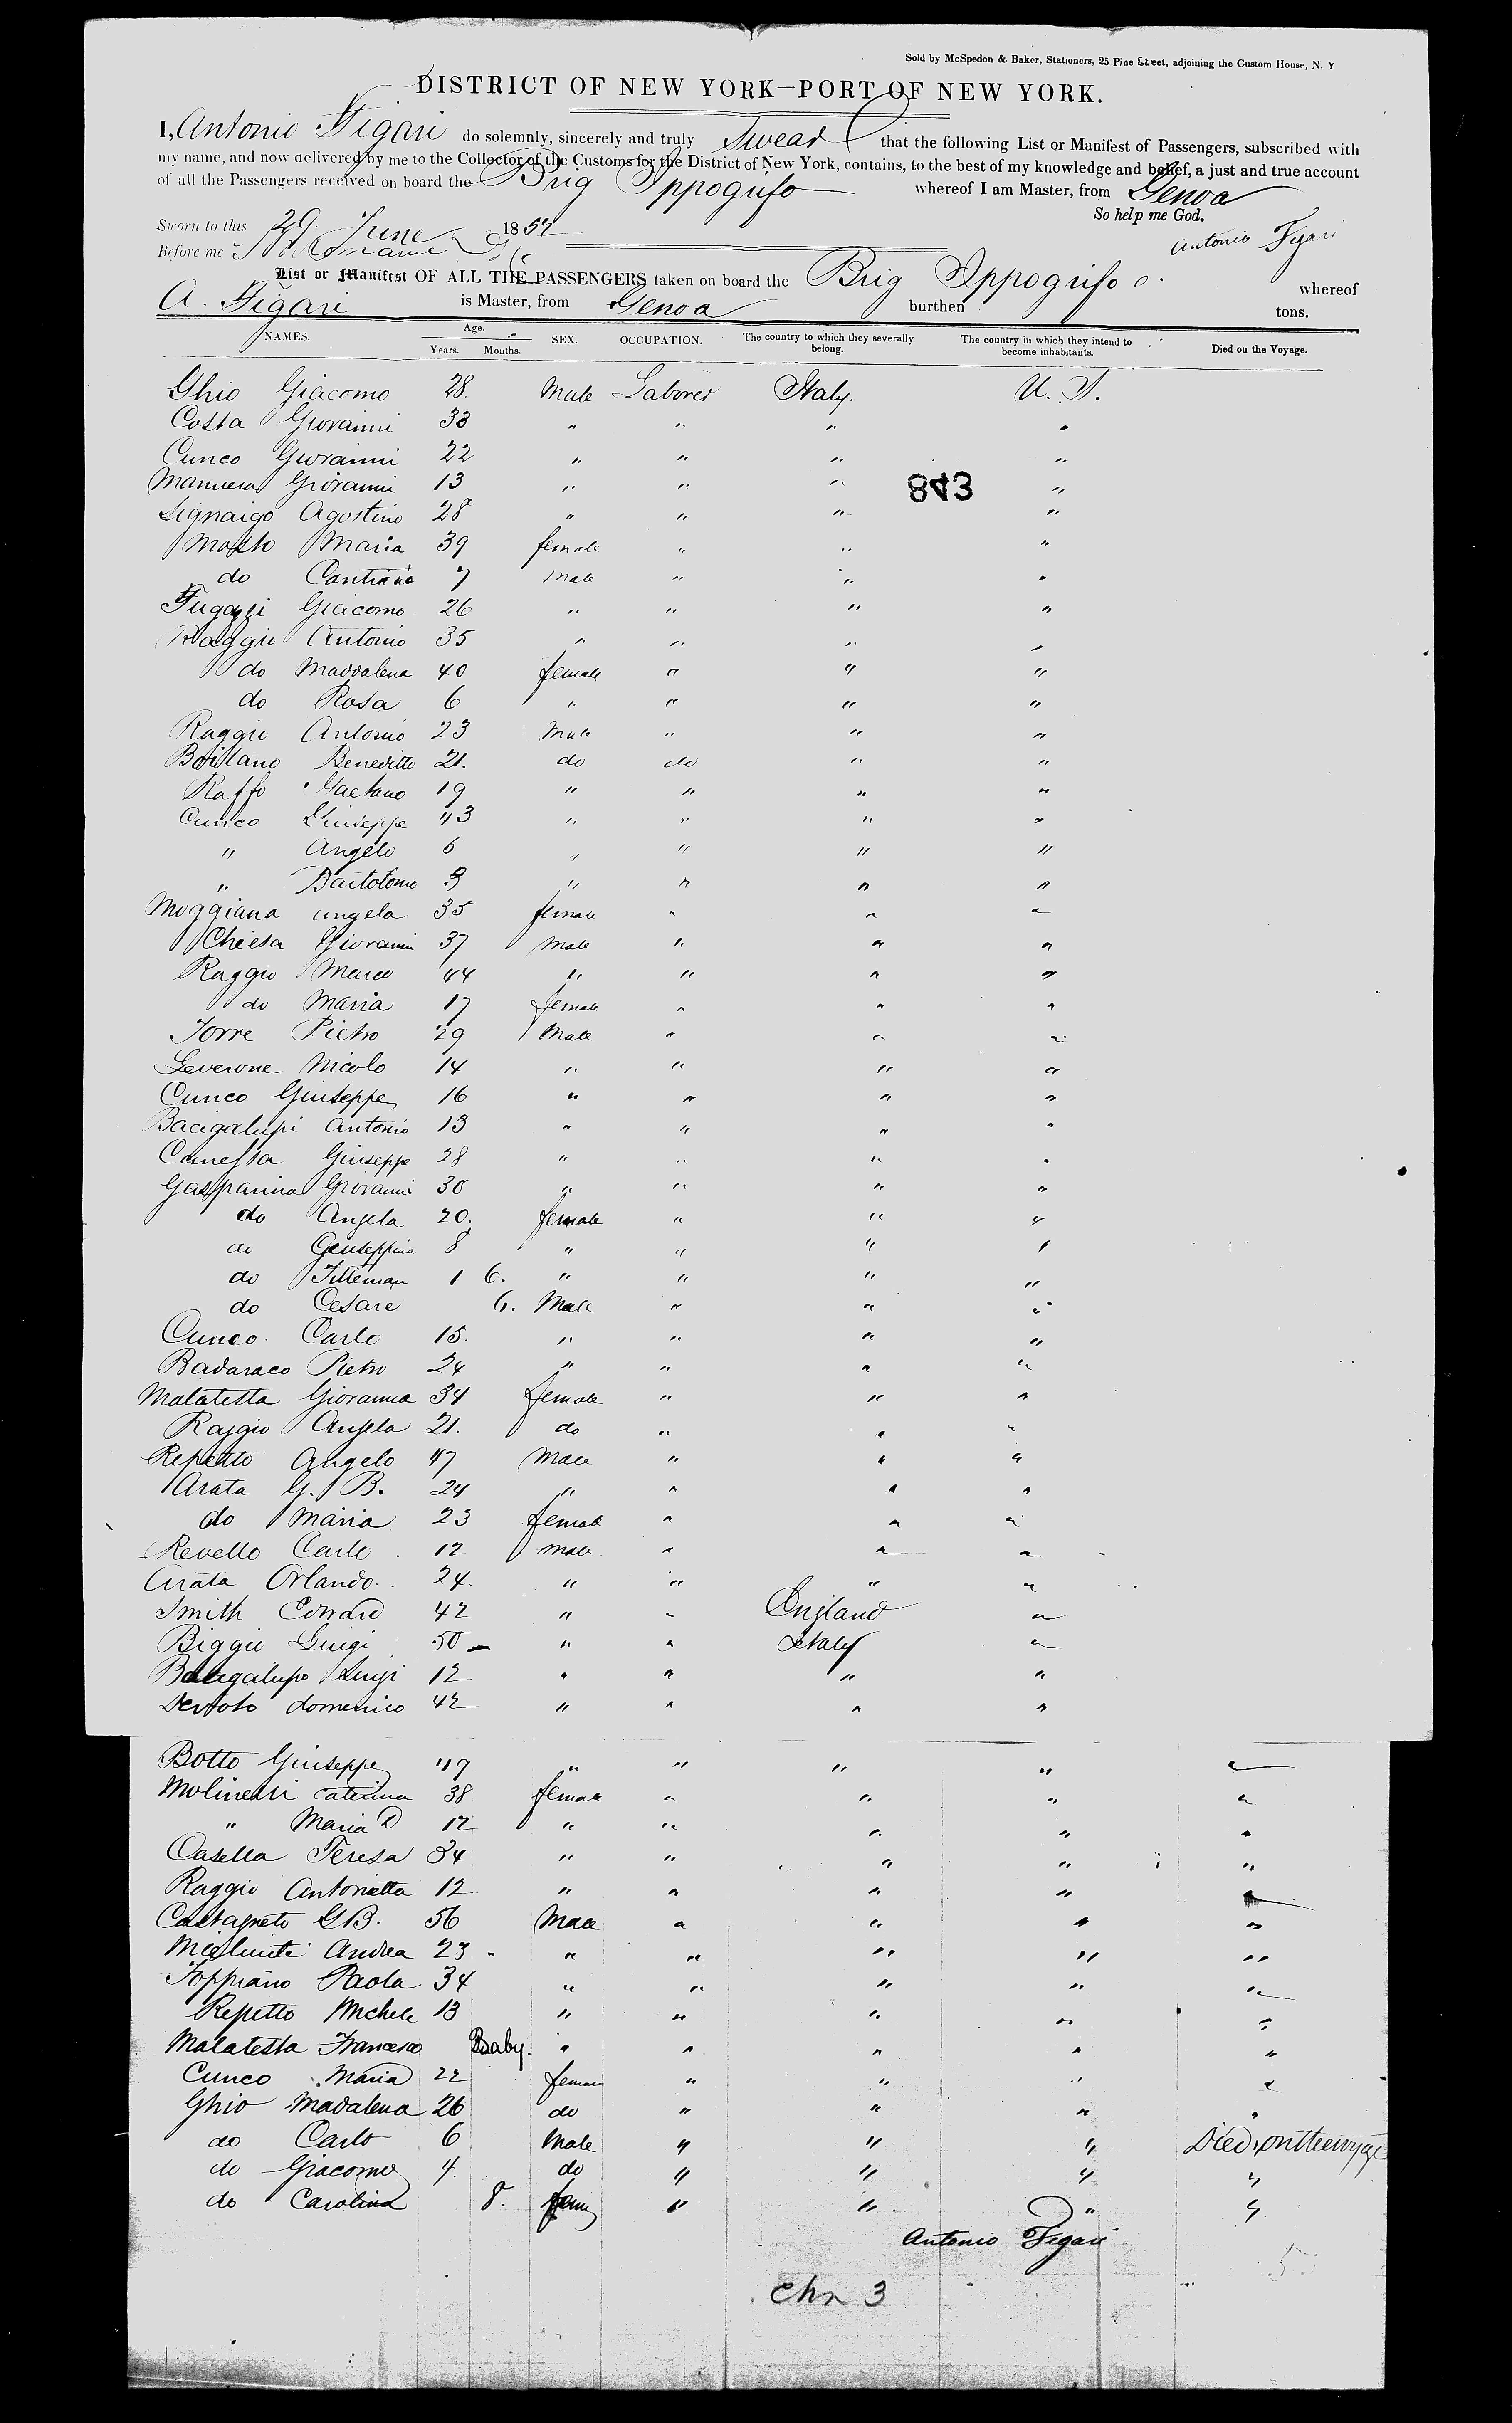 Sold by McSpedon & Baker, Stationers, 25 Pine Street, adjoining the Custom House, N. Y
DISTRICT OF NEW YORK—PORT OF NEW YORK.
I, Antonio Figari do solemnly, sincerely and truly Swear that the following List or Manifest of Passengers, subscribed with
my name, and now delivered by me to the Collector of the Customs for the District of New York, contains, to the best of my knowledge and belief, a just and true account
of all the Passengers received on board the Brig Ippogrifo whereof I am Master, from Genoa
So help me God.
Sworn to this 29 June 1857
Antonio Figari
Before me
List or Manifest OF ALL THE PASSENGERS taken on board the Brig Ippogrifo whereof
A. Figari is Master, from Genoa burthen tons.
NAMES. Age. Years. Months. SEX. OCCUPATION. The country to which they severally belong. The country in which they intend to become inhabitants. Died on the Voyage.
Ghio Giacomo 28. Male Laborer Italy. U. S.
Costa Giovanni 33 " " " "
Cuneo Giovanni 22 " " " "
Giovanni 13 " " " 843 "
Signaigo Agostino 28 " " " "
Maria 39 female " " "
do 7 Male " " "
Fugazzi Giacomo 26 " " " "
Raggio Antonio 35 " " " "
do Maddalena 40 female " " "
do Rosa 6 " " " "
Raggio Antonio 23 Male " " "
Beneditto 21. do do " "
Raffo Gaetano 19 " " " "
Cuneo Giuseppe 43 " " " "
" Angelo 6 " " " "
" Bartolomo 3 " " " "
Moggiana Angela 35 female " " "
Chiesa Giovanni 37 Male " " "
Raggio Marco 44 " " " "
do Maria 17 female " " "
Torre Pietro 29 Male " " "
Leverone Nicolo 14 " " " "
Cuneo Giuseppe 16 " " " "
Bacigalupi Antonio 13 " " " "
Canessa Giuseppe 28 " " " "
Gasparina Giovanni 30 " " " "
do Angela 20. female " " "
do Giuseppina 8 " " " "
do 1 6. " " " "
do Cesare 6. Male " " "
Cuneo Carlo 15. " " " "
Badaraco Pietro 24 " " " "
Malatesta Giovanna 34 female " " "
Raggio Angela 21. do " " "
Repetto Angelo 47 Male " " "
Arata G. B. 24 " " " "
do Maria 23 female " " "
Revello Carlo 12 Male " " "
Arata Orlando 24. " " " "
Smith Edward 42 " " England "
Biggio Luigi 50 " " Italy "
Bacigalupo Luigi 12 " " " "
Devoto domenico 42 " " " "
Botto Giuseppe 49 " " " "
Molinelli Caterina 38 female " " " "
" Maria D 12 " " " " "
Casella Teresa 34 " " " " "
Raggio Antonietta 12 " " " " "
Castagneto G B. 56 Male " " " "
Andrea 23 " " " " "
Foppiano Paola 34 " " " " "
Repetto Michele 13 " " " " "
Malatesta Francesco Baby. " " " " "
Cuneo Maria 22 female " " " "
Ghio Madalena 26 do " " " "
do Carlo 6 Male " " " Died on the voyage
do Giacomo 4. do " " " "
do Carolina 8. fem " " " "
Antonio Figari
Chn 3